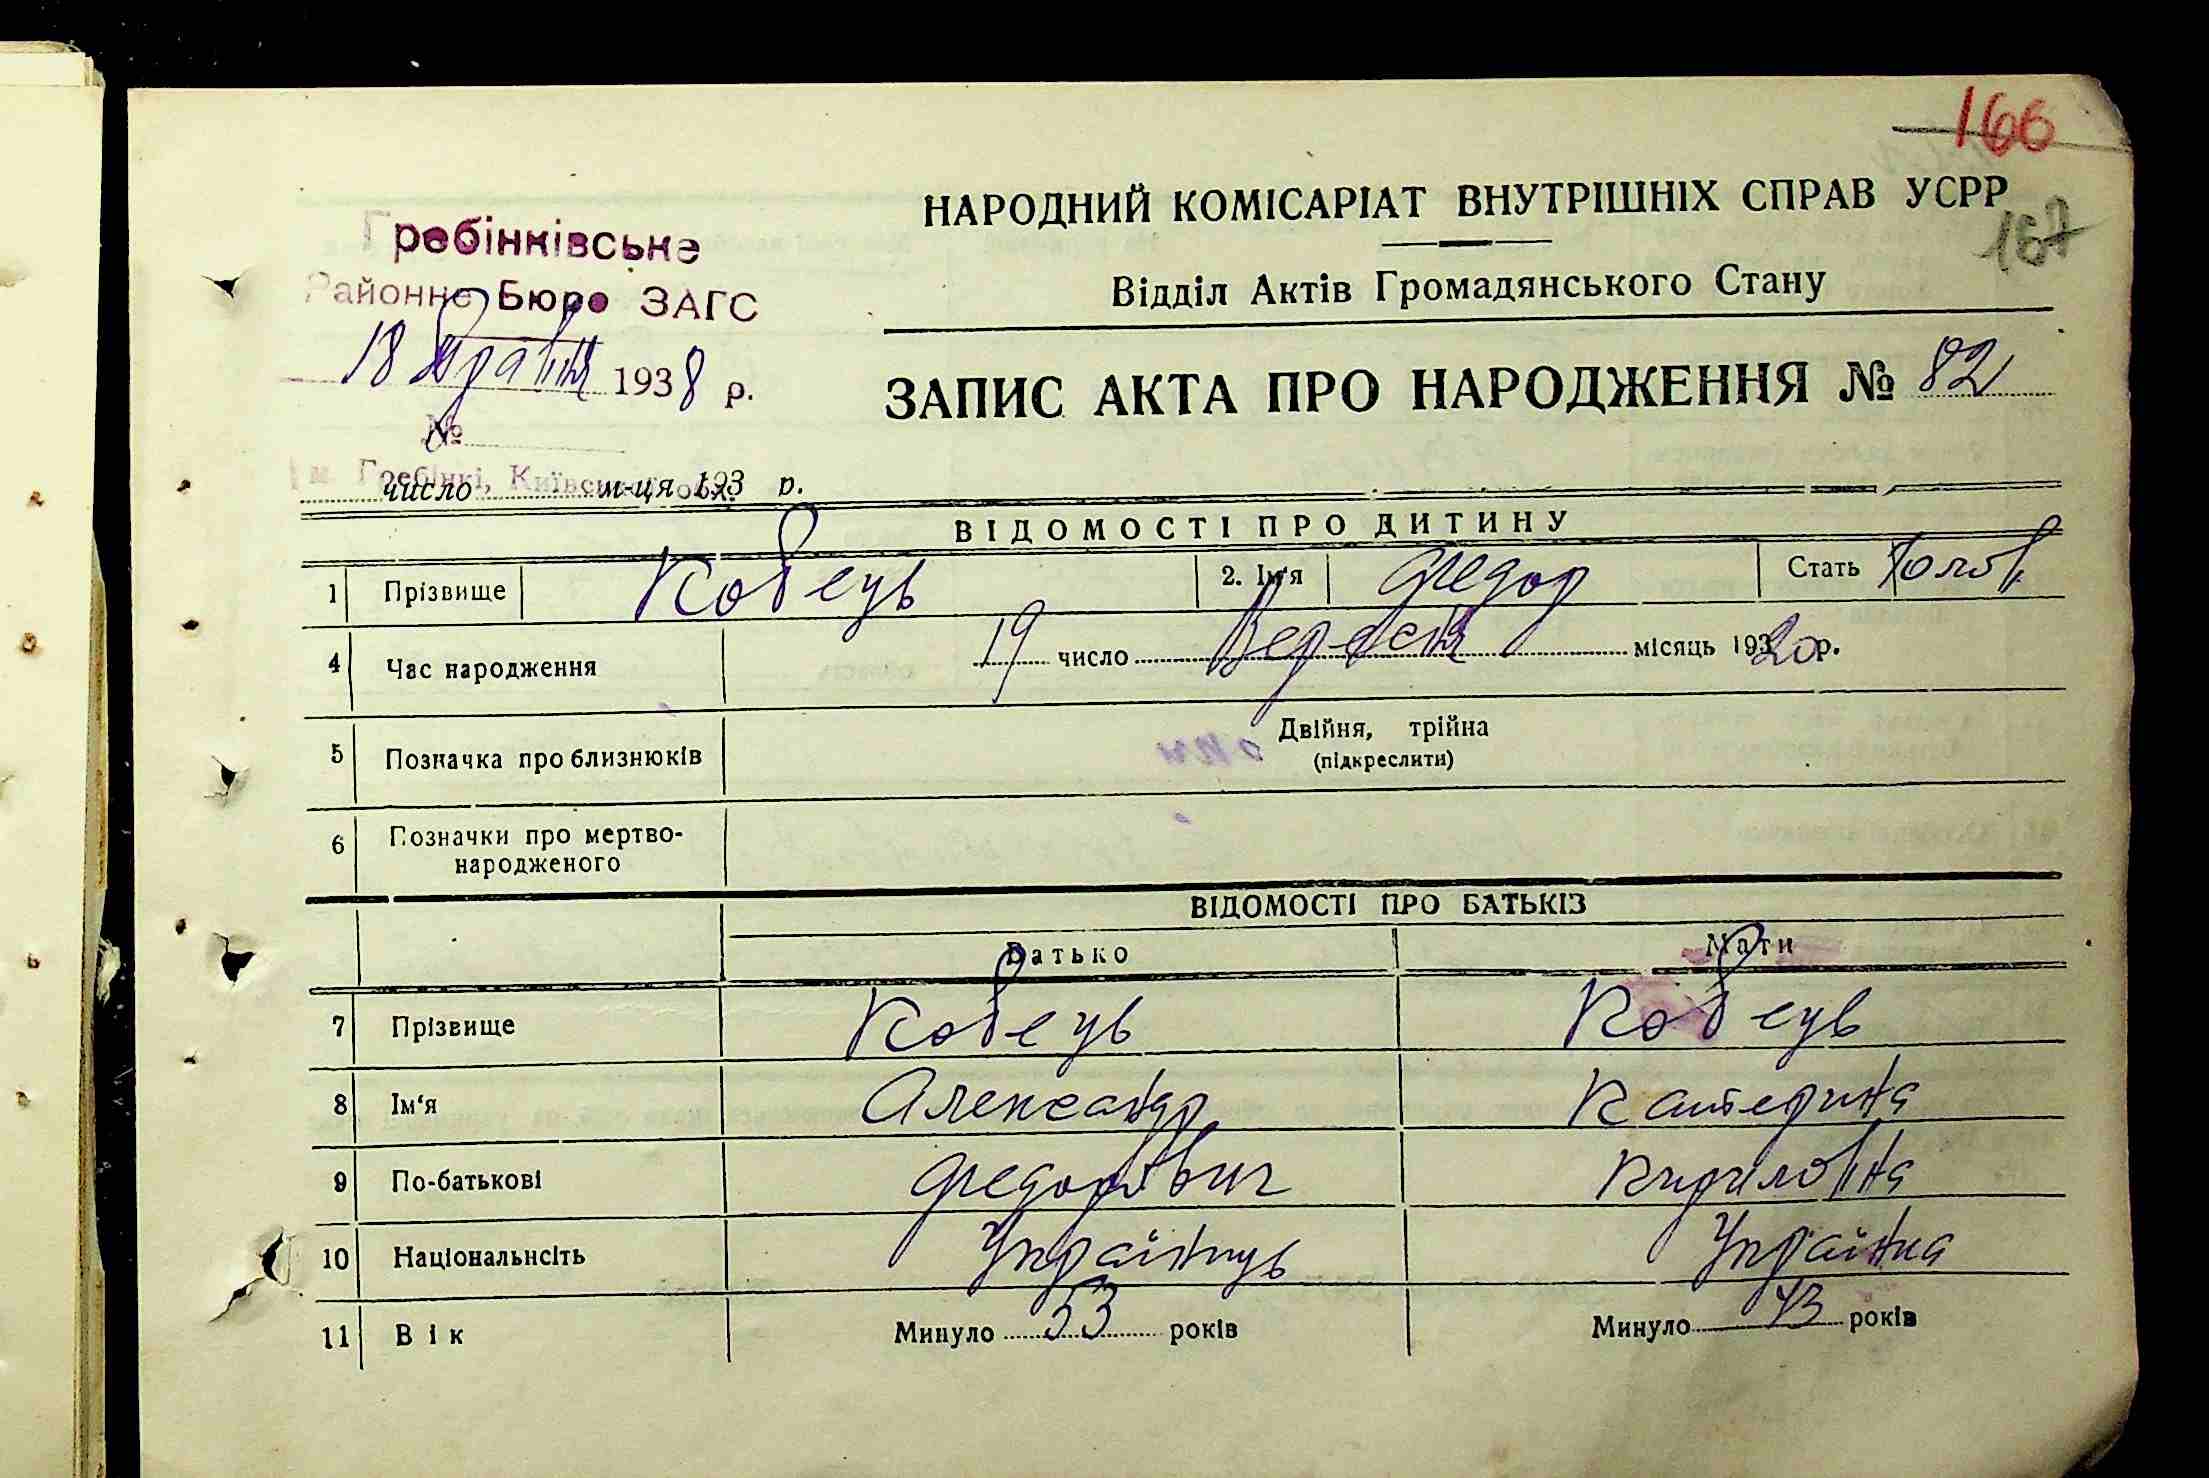 166
НАРОДНИЙ КОМІСАРІАТ ВНУТРІШНІХ СПРАВ УСРР
167
Гребінківське
Районне Бюро ЗАГС
Відділ Актів Громадянського Стану
18 травня 1938 р.
ЗАПИС АКТА ПРО НАРОДЖЕННЯ № 82
№
м. Гребінкі, Київської обл.
число м-ця 193 р.
ВІДОМОСТІ ПРО ДИТИНУ
1 Прізвище Кобець 2. Ім'я Федор Стать Чолов.
4 Час народження 19 число Вересня місяць 1920 р.
5 Позначка про близнюків Двійня, трійна
(підкреслити)
6 Позначки про мертво-
народженого
ВІДОМОСТІ ПРО БАТЬКІЗ
Батько Мати
7 Прізвище Кобець Кобець
8 Ім'я Александр Катерина
9 По-батькові Федорович Кириловна
10 Національність Українець Українка
11 Вік Минуло 53 років Минуло 43 років